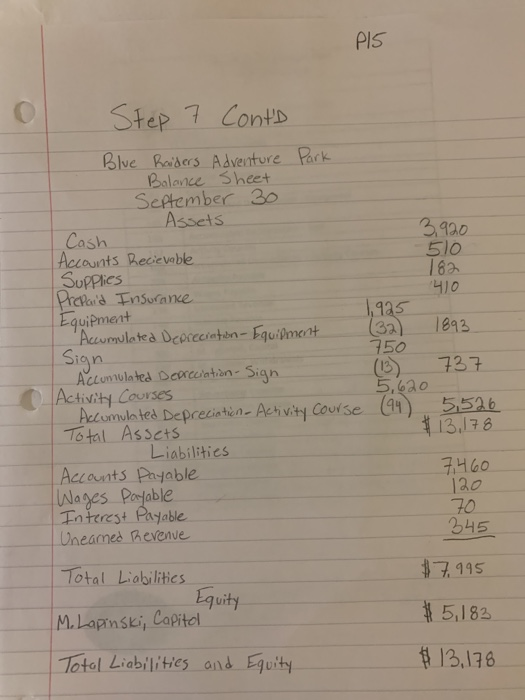 P15
Step 7 Cont'D
Blue Raiders Adventure Park
Balance Sheet
September 30
Assets
Cash 3,920
Accounts Recievable 510
Supplies 182
Prepaid Insurance 410
Equipment 1,925
Accumulated Depreciation - Equipment (32) 1893
Sign 750
Accumulated Depreciation - Sign (13) 737
Activity Courses 5,620
Accumulated Depreciation - Activity Course (94) 5,526
Total Assets $13,178
Liabilities
Accounts Payable 7,460
Wages Payable 120
Interest Payable 70
Unearned Revenue 345
Total Liabilities $7,995
Equity
M. Lapinski, Capitol $5,183
Total Liabilities and Equity $13,178